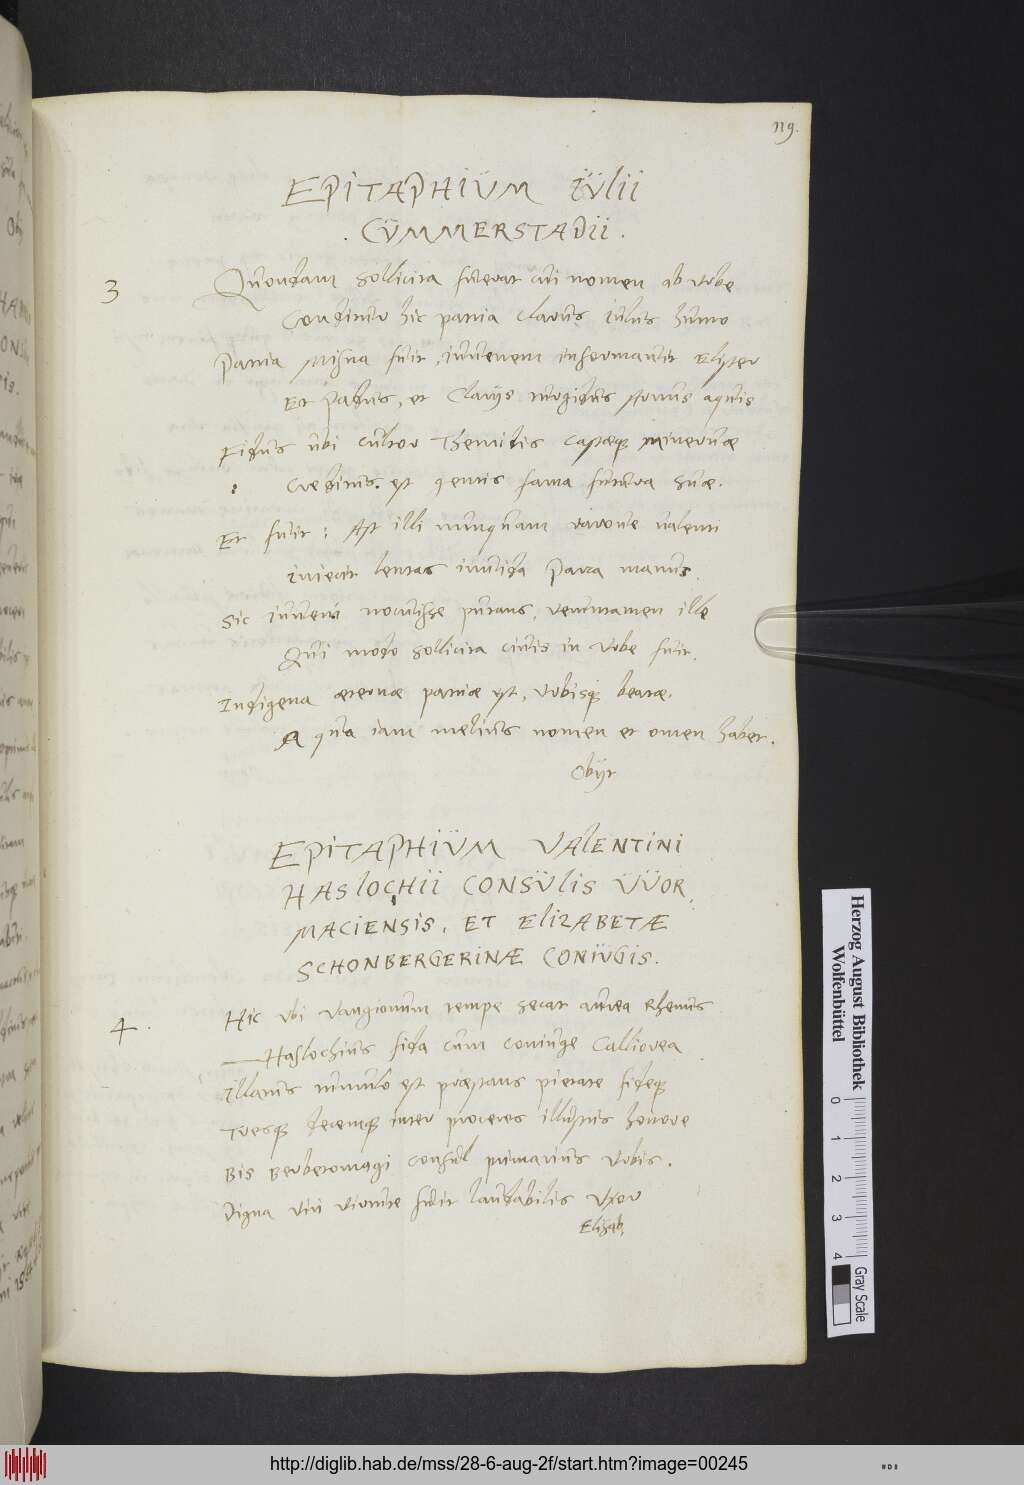 119.
EPITAPHIUM IULII
. CUMMERSTADII .
3
Quondam sollicita fuerat cui nomen ab urbe
Conditur hic patria clarus Iulus humo
Patria Misna fuit, iuvenem informavit Elyster
Et Padus, et Clarijs aquis
Fidus ubi cultor Themidis castæq Minervæ
Creditus est gentis fama futura suæ.
Et fuit: Ast illi nunquam ratione valenti
iniecit lentas invida Parca manus.
Sic iuveni nocuisse putans, veruntamen ille
Qui modo sollicita civis in urbe fuit,
Indigena æternæ patriæ est, urbisq beatæ.
A qua iam melius nomen et omen habet.
Obijt
EPITAPHIUM VALENTINI
HASLOCHII CONSULIS UUOR,
MACIENSIS, ET ELIZABETÆ
SCHONBERGERINÆ CONIUGIS.
4.
Hic ubi Vangionum tempe secat aurea Rhenus
Haslochius fida cum coniuge
illatus tumulo est præstans pietate fideq
Tresq decemq inter proceres illustris honore
Bis Berbetomagi consul primarius urbis.
Digna viri virtute fuit laudabilis Uxor
Elizab,
Herzog August Bibliothek
Wolfenbüttel
0 1 2 3 4
Gray Scale
http://diglib.hab.de/mss/28-6-aug-2f/start.htm?image=00245